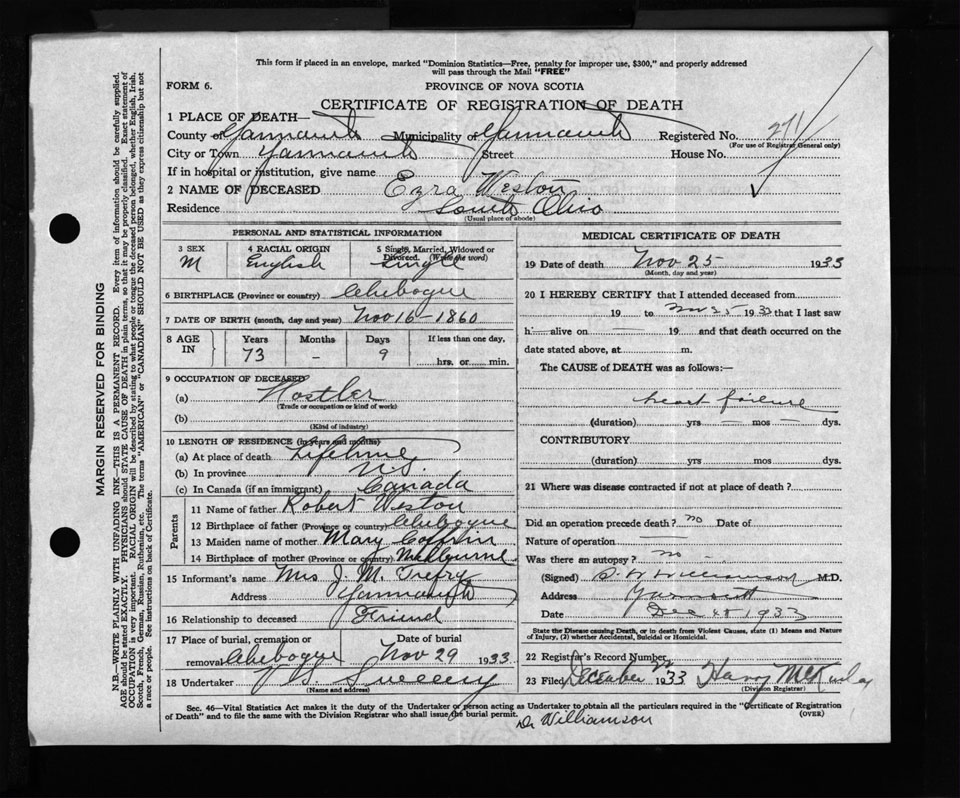 This form if placed in an envelope, marked "Dominion Statistics—Free, penalty for improper use, $300," and properly addressed
will pass through the Mail "FREE"
FORM 6.
PROVINCE OF NOVA SCOTIA
CERTIFICATE OF REGISTRATION OF DEATH
1 PLACE OF DEATH—
County of Yarmouth Municipality of Yarmouth Registered No. 271
(For use of Registrar General only)
City or Town Yarmouth Street House No.
If in hospital or institution, give name
2 NAME OF DECEASED Ezra Weston
Residence South Ohio
(Usual place of abode)
PERSONAL AND STATISTICAL INFORMATION
3 SEX 4 RACIAL ORIGIN 5 Single, Married, Widowed or Divorced. (Write the word)
M English Single
6 BIRTHPLACE (Province or country) Chebogue
7 DATE OF BIRTH (month, day and year) Nov 16 - 1860
8 AGE IN Years Months Days If less than one day,
73 - 9 hrs. or min.
9 OCCUPATION OF DECEASED
(a) Hostler
(Trade or occupation or kind of work)
(b)
(Kind of industry)
10 LENGTH OF RESIDENCE (in years and months)
(a) At place of death Lifetime
(b) In province N.S.
(c) In Canada (if an immigrant) Canada
Parents
11 Name of father Robert Weston
12 Birthplace of father (Province or country) Chebogue
13 Maiden name of mother Mary Coffrin
14 Birthplace of mother (Province or country) Melbourne
15 Informant's name Mrs J. M. Trefry
Address Yarmouth
16 Relationship to deceased Friend
17 Place of burial, cremation or removal Chebogue Date of burial Nov 29 1933
18 Undertaker V S Sweeny
(Name and address)
MEDICAL CERTIFICATE OF DEATH
19 Date of death Nov 25 1933
(Month, day and year)
20 I HEREBY CERTIFY that I attended deceased from
19 to Nov 25 1933 that I last saw
h alive on — 19 and that death occurred on
date stated above, at m.
The CAUSE of DEATH was as follows:—
heart failure
(duration) yrs — mos — dys.
CONTRIBUTORY
(duration) yrs mos dys.
21 Where was disease contracted if not at place of death?
Did an operation precede death? no Date of
Nature of operation —
Was there an autopsy? no
(Signed) Williamson M.D.
Address Yarmouth
Date Dec 1933
State the Disease causing Death, or in death from Violent Causes, state (1) Means and Nature
of Injury, (2) whether Accidental, Suicidal or Homicidal.
22 Registrar's Record Number
23 Filed December 1933 Harry
(Division Registrar)
Sec. 46—Vital Statistics Act makes it the duty of the Undertaker or person acting as Undertaker to obtain all the particulars required in the "Certificate of Registration
of Death" and to file the same with the Division Registrar who shall issue the burial permit. (OVER)
Dr Williamson
MARGIN RESERVED FOR BINDING
N.B.—WRITE PLAINLY WITH UNFADING INK—THIS IS A PERMANENT RECORD. Every item of information should be carefully supplied.
AGE should be stated EXACTLY. PHYSICIANS should STATE CAUSE OF DEATH in plain terms, so that it may be properly classified. Exact statement of
OCCUPATION is very important. RACIAL ORIGIN will be described by stating to what people or tongue the deceased person belonged, whether English, Irish,
Scotch, French, German, Russian, Ruthenian, etc. The terms "AMERICAN" or "CANADIAN" SHOULD NOT BE USED as they express citizenship but not
a race or people. See instructions on back of Certificate.